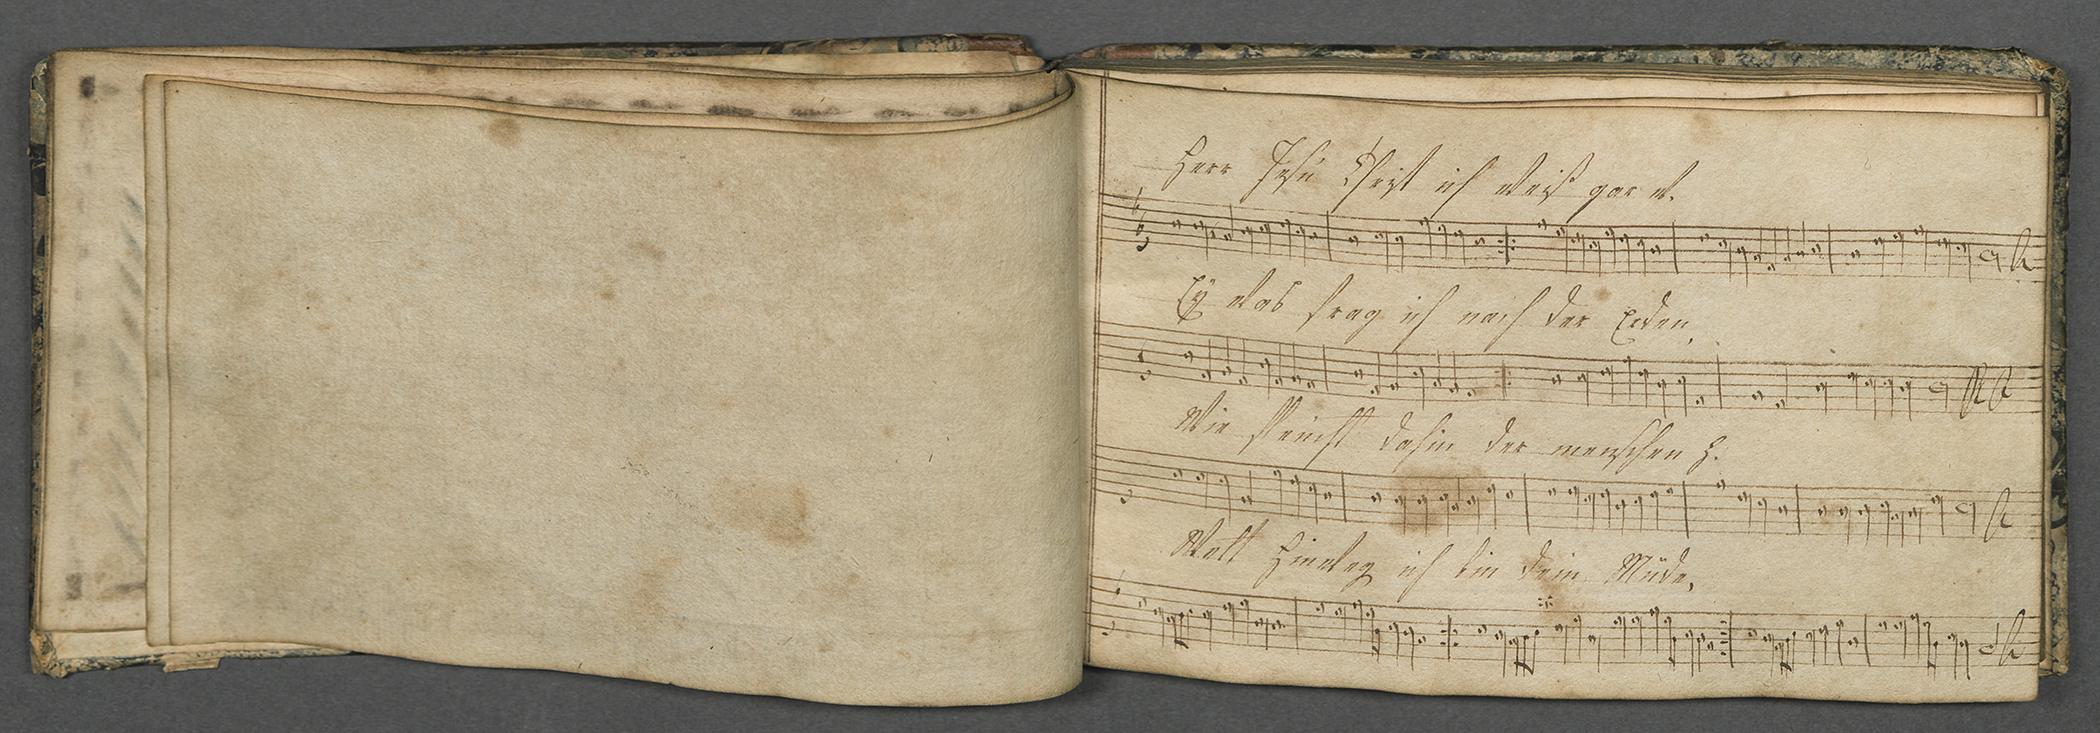 Herr Jesu Christ ich weiß gar w.
Ey was frag ich nach der Erden,
Wie fleucht dahin der menschen Z.
Welt hinweg ich bin dein Müde,